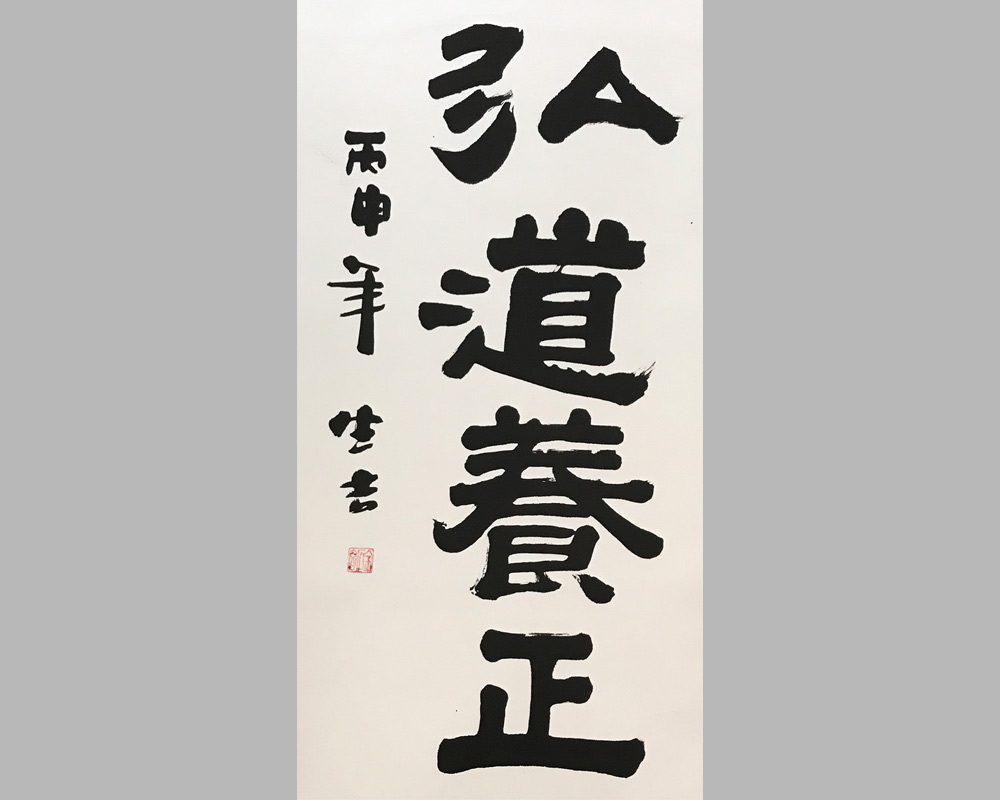 弘道養正
丙申年 生吉